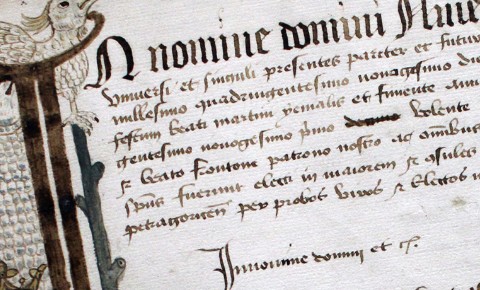 In nomine domini Ame
Universi et singuli presentes pariter et futuri
millesimo quadringentesimo nonagesimo du
festum beati martini yemalis et finiente anno
gentesimo nonogesimo primo domino volente
et beato frontone patrono nostro ac omnibus
spūs fuerunt electi in maiorem et cōsules
petragoriceñ per probos viros et electos
In nomine domini et cͣ.